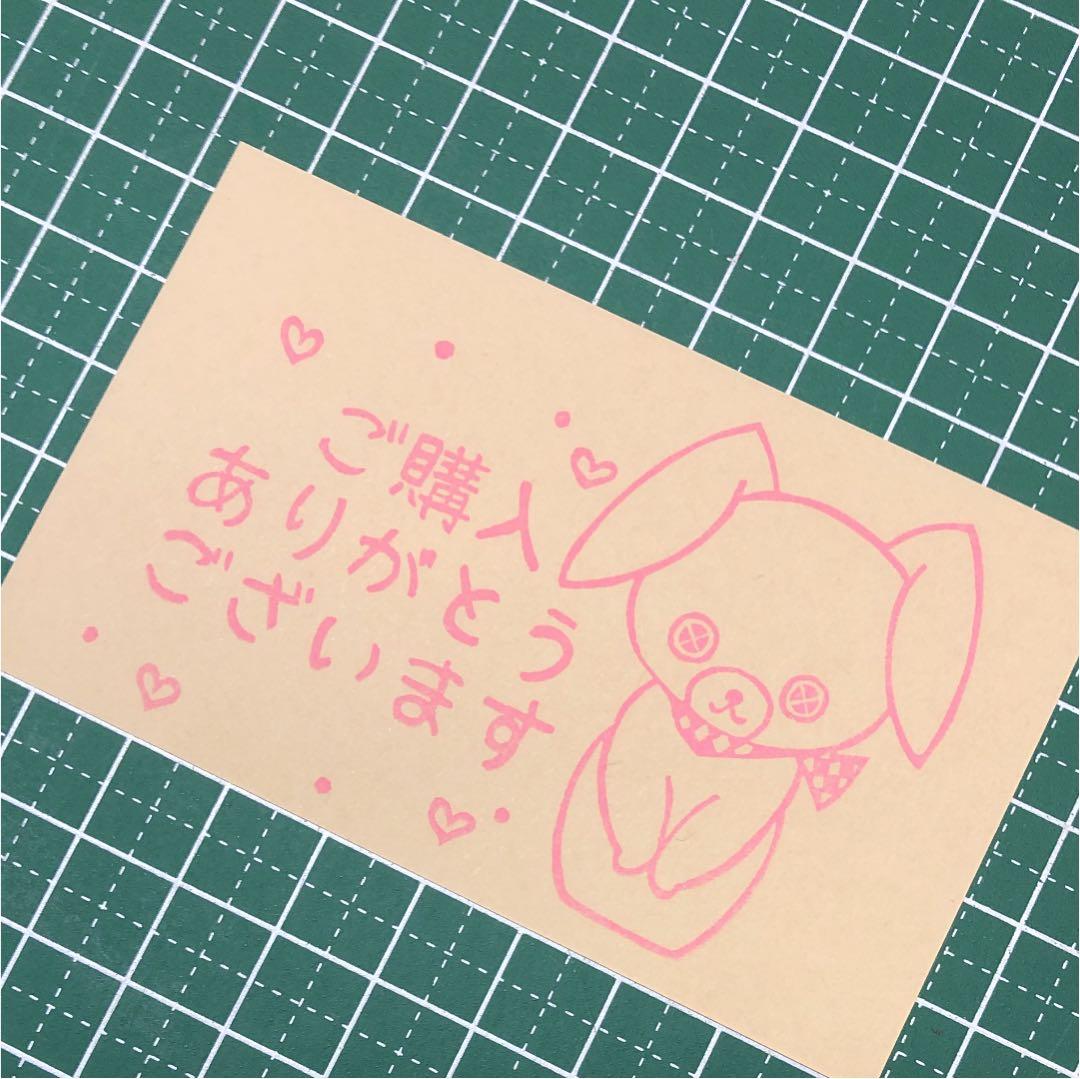 ご購入
ありがとう
ございます